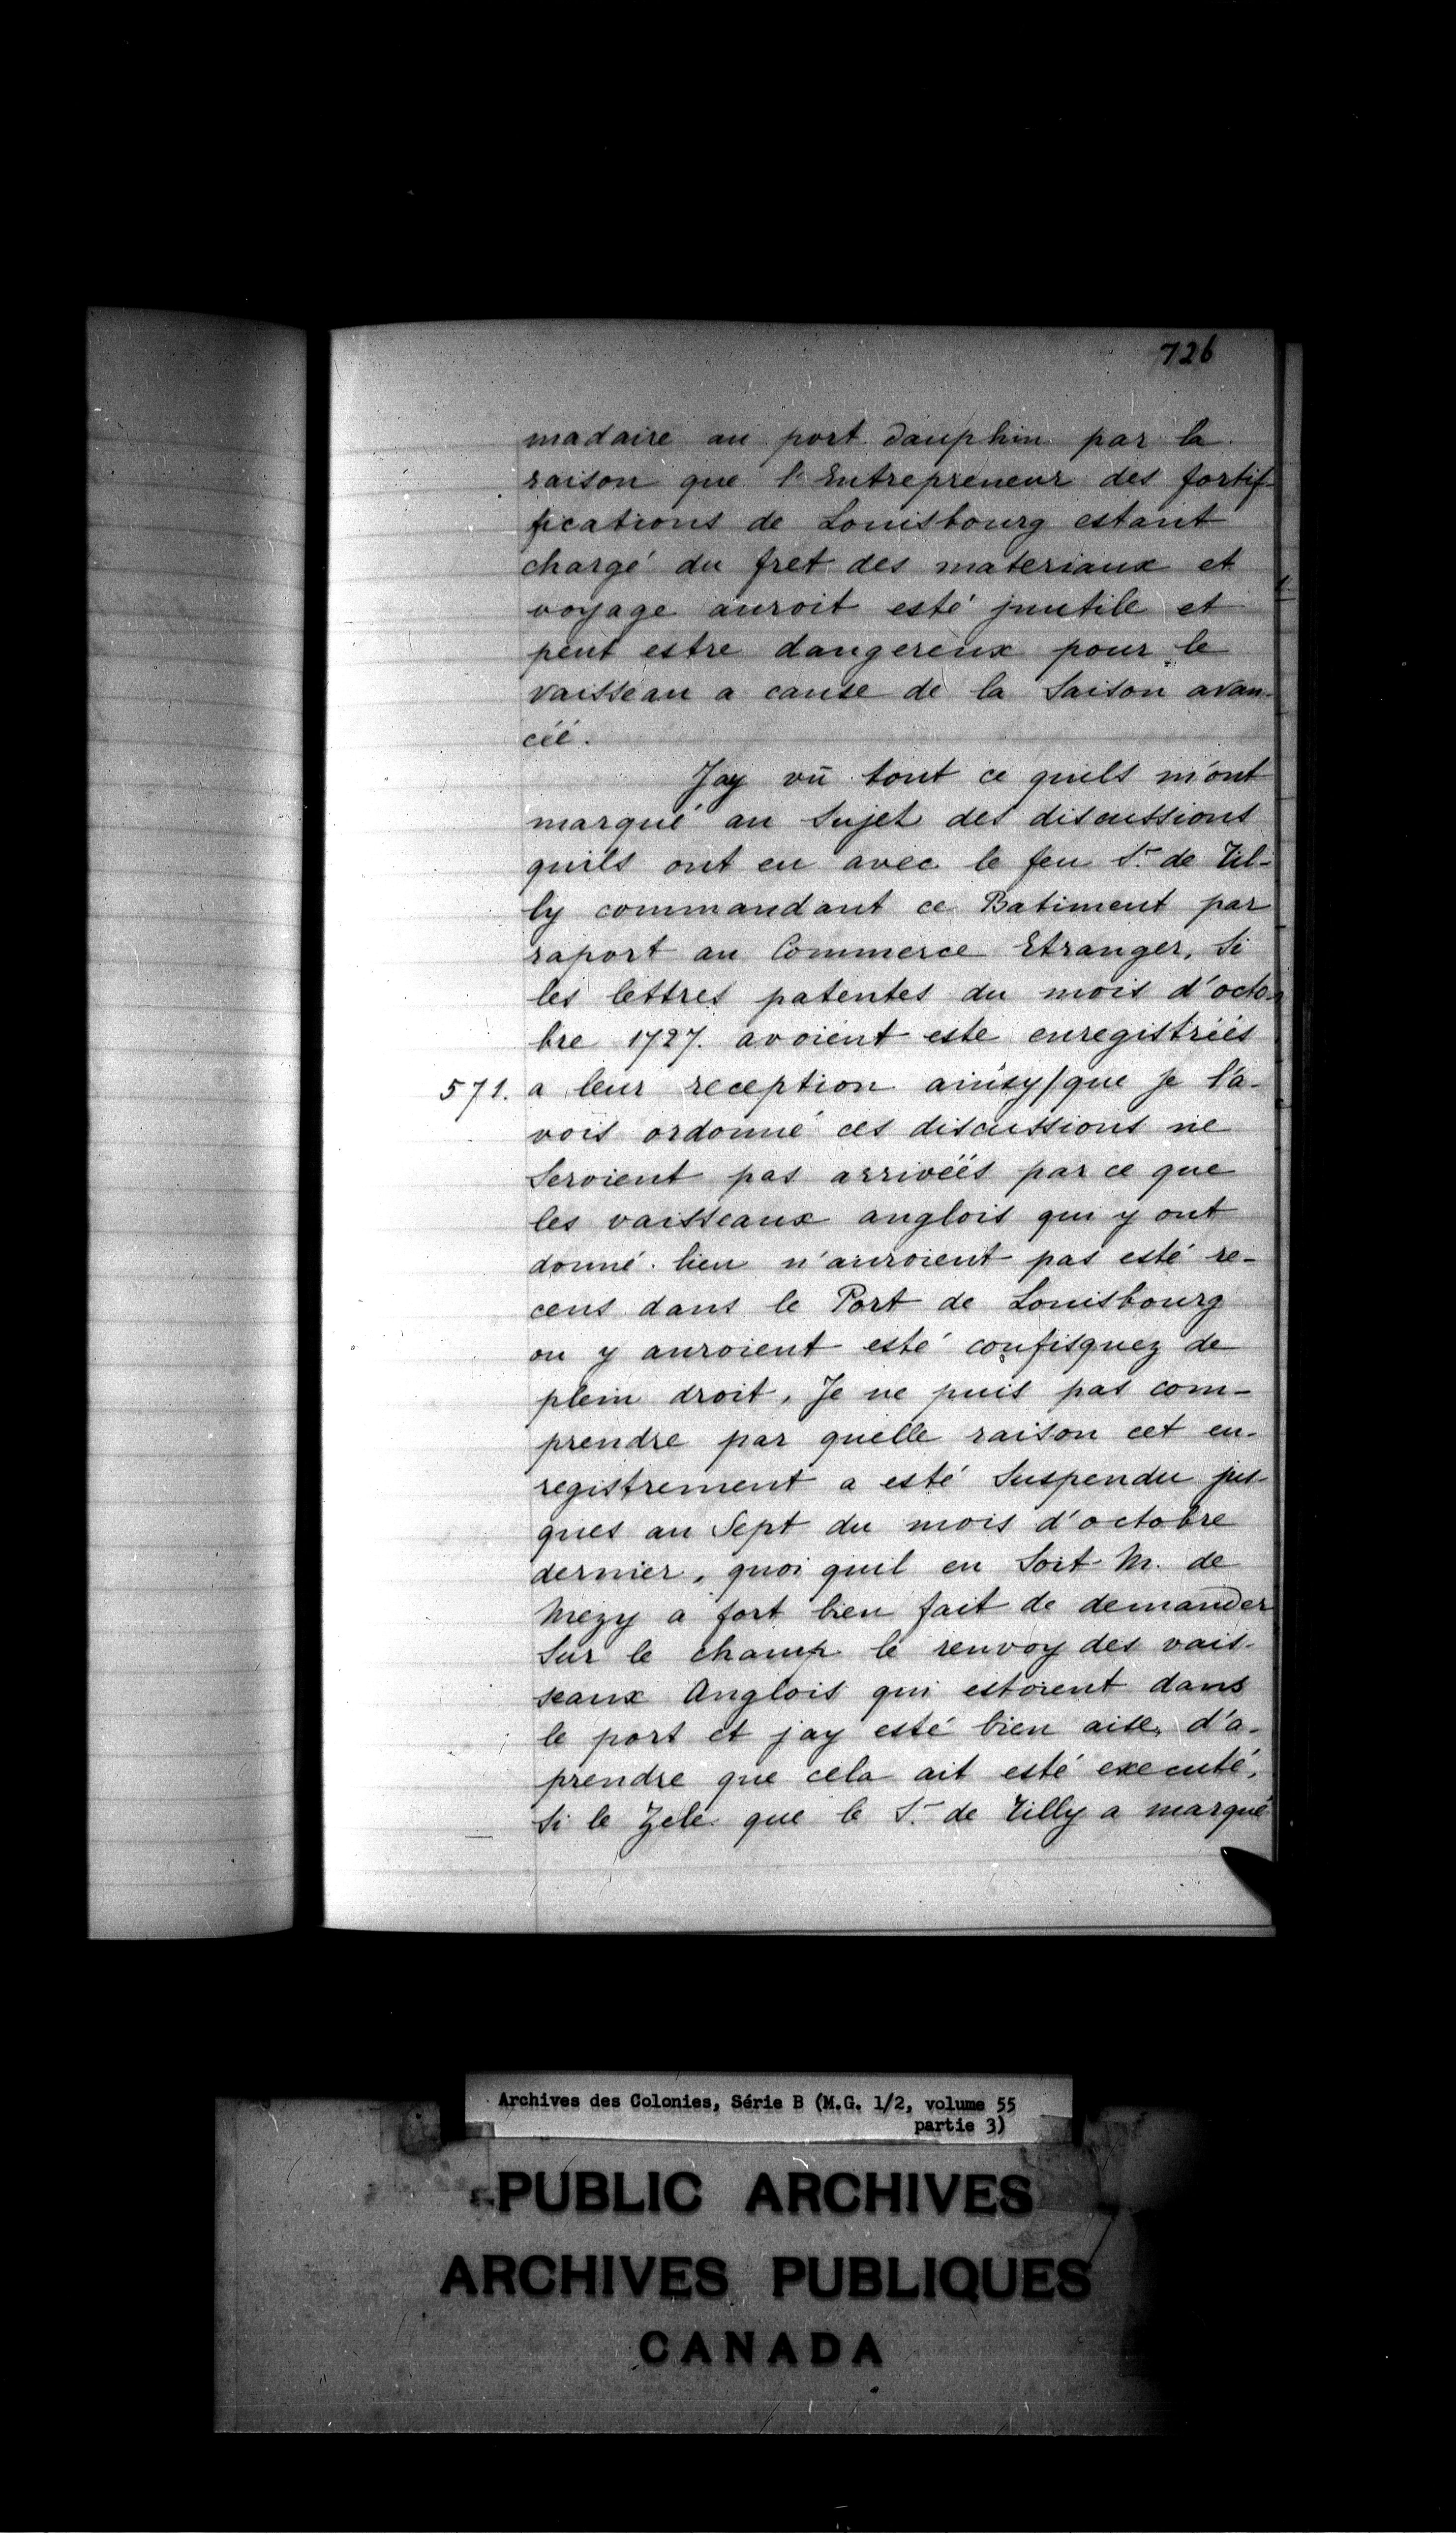 726
madaire au port dauphin par la
raison que l'Entrepreneur des fortif-
fications de Louisbourg estant
chargé du fret des materiaux et
voyage auroit esté jnutile et
peut estre dangereux pour le
vaisseau a cause de la Saison avan-
céé.
Jay vû tout ce quils m'ont
marqué au Sujet des discussions
quils ont eu avec le feu Sr. de Til-
ly commandant ce Batiment par
raport au Commerce Etranger, Si
les lettres patentes du mois d'octo-
bre 1727. avoient esté enregistréés
571. a leur reception ainsy/que je l'a-
vois ordonné ces discussions ne
Seroient pas arrivéés par ce que
les vaisseaux anglois qui y ont
donné lieu n'auroient pas esté re-
ceus dans le Port de Louisbourg
ou y auroient esté confisquez de
plein droit, Je ne puis pas com-
prendre par quelle raison cet en-
registrement a esté Suspendu jus-
ques au Sept du mois d'octobre
dernier, quoi quil en Soit M. de
Mezy a fort bien fait de demander
Sur le champ le renvoy des vais-
seaux Anglois qui estoient dans
le port et jay esté bien aise, d'a-
prendre que cela ait esté executé,
Si le Zele que le Sr. de Tilly a marqué
Archives des Colonies, Série B (M.G. 1/2, volume 55
partie 3)
PUBLIC ARCHIVES
ARCHIVES PUBLIQUES
CANADA